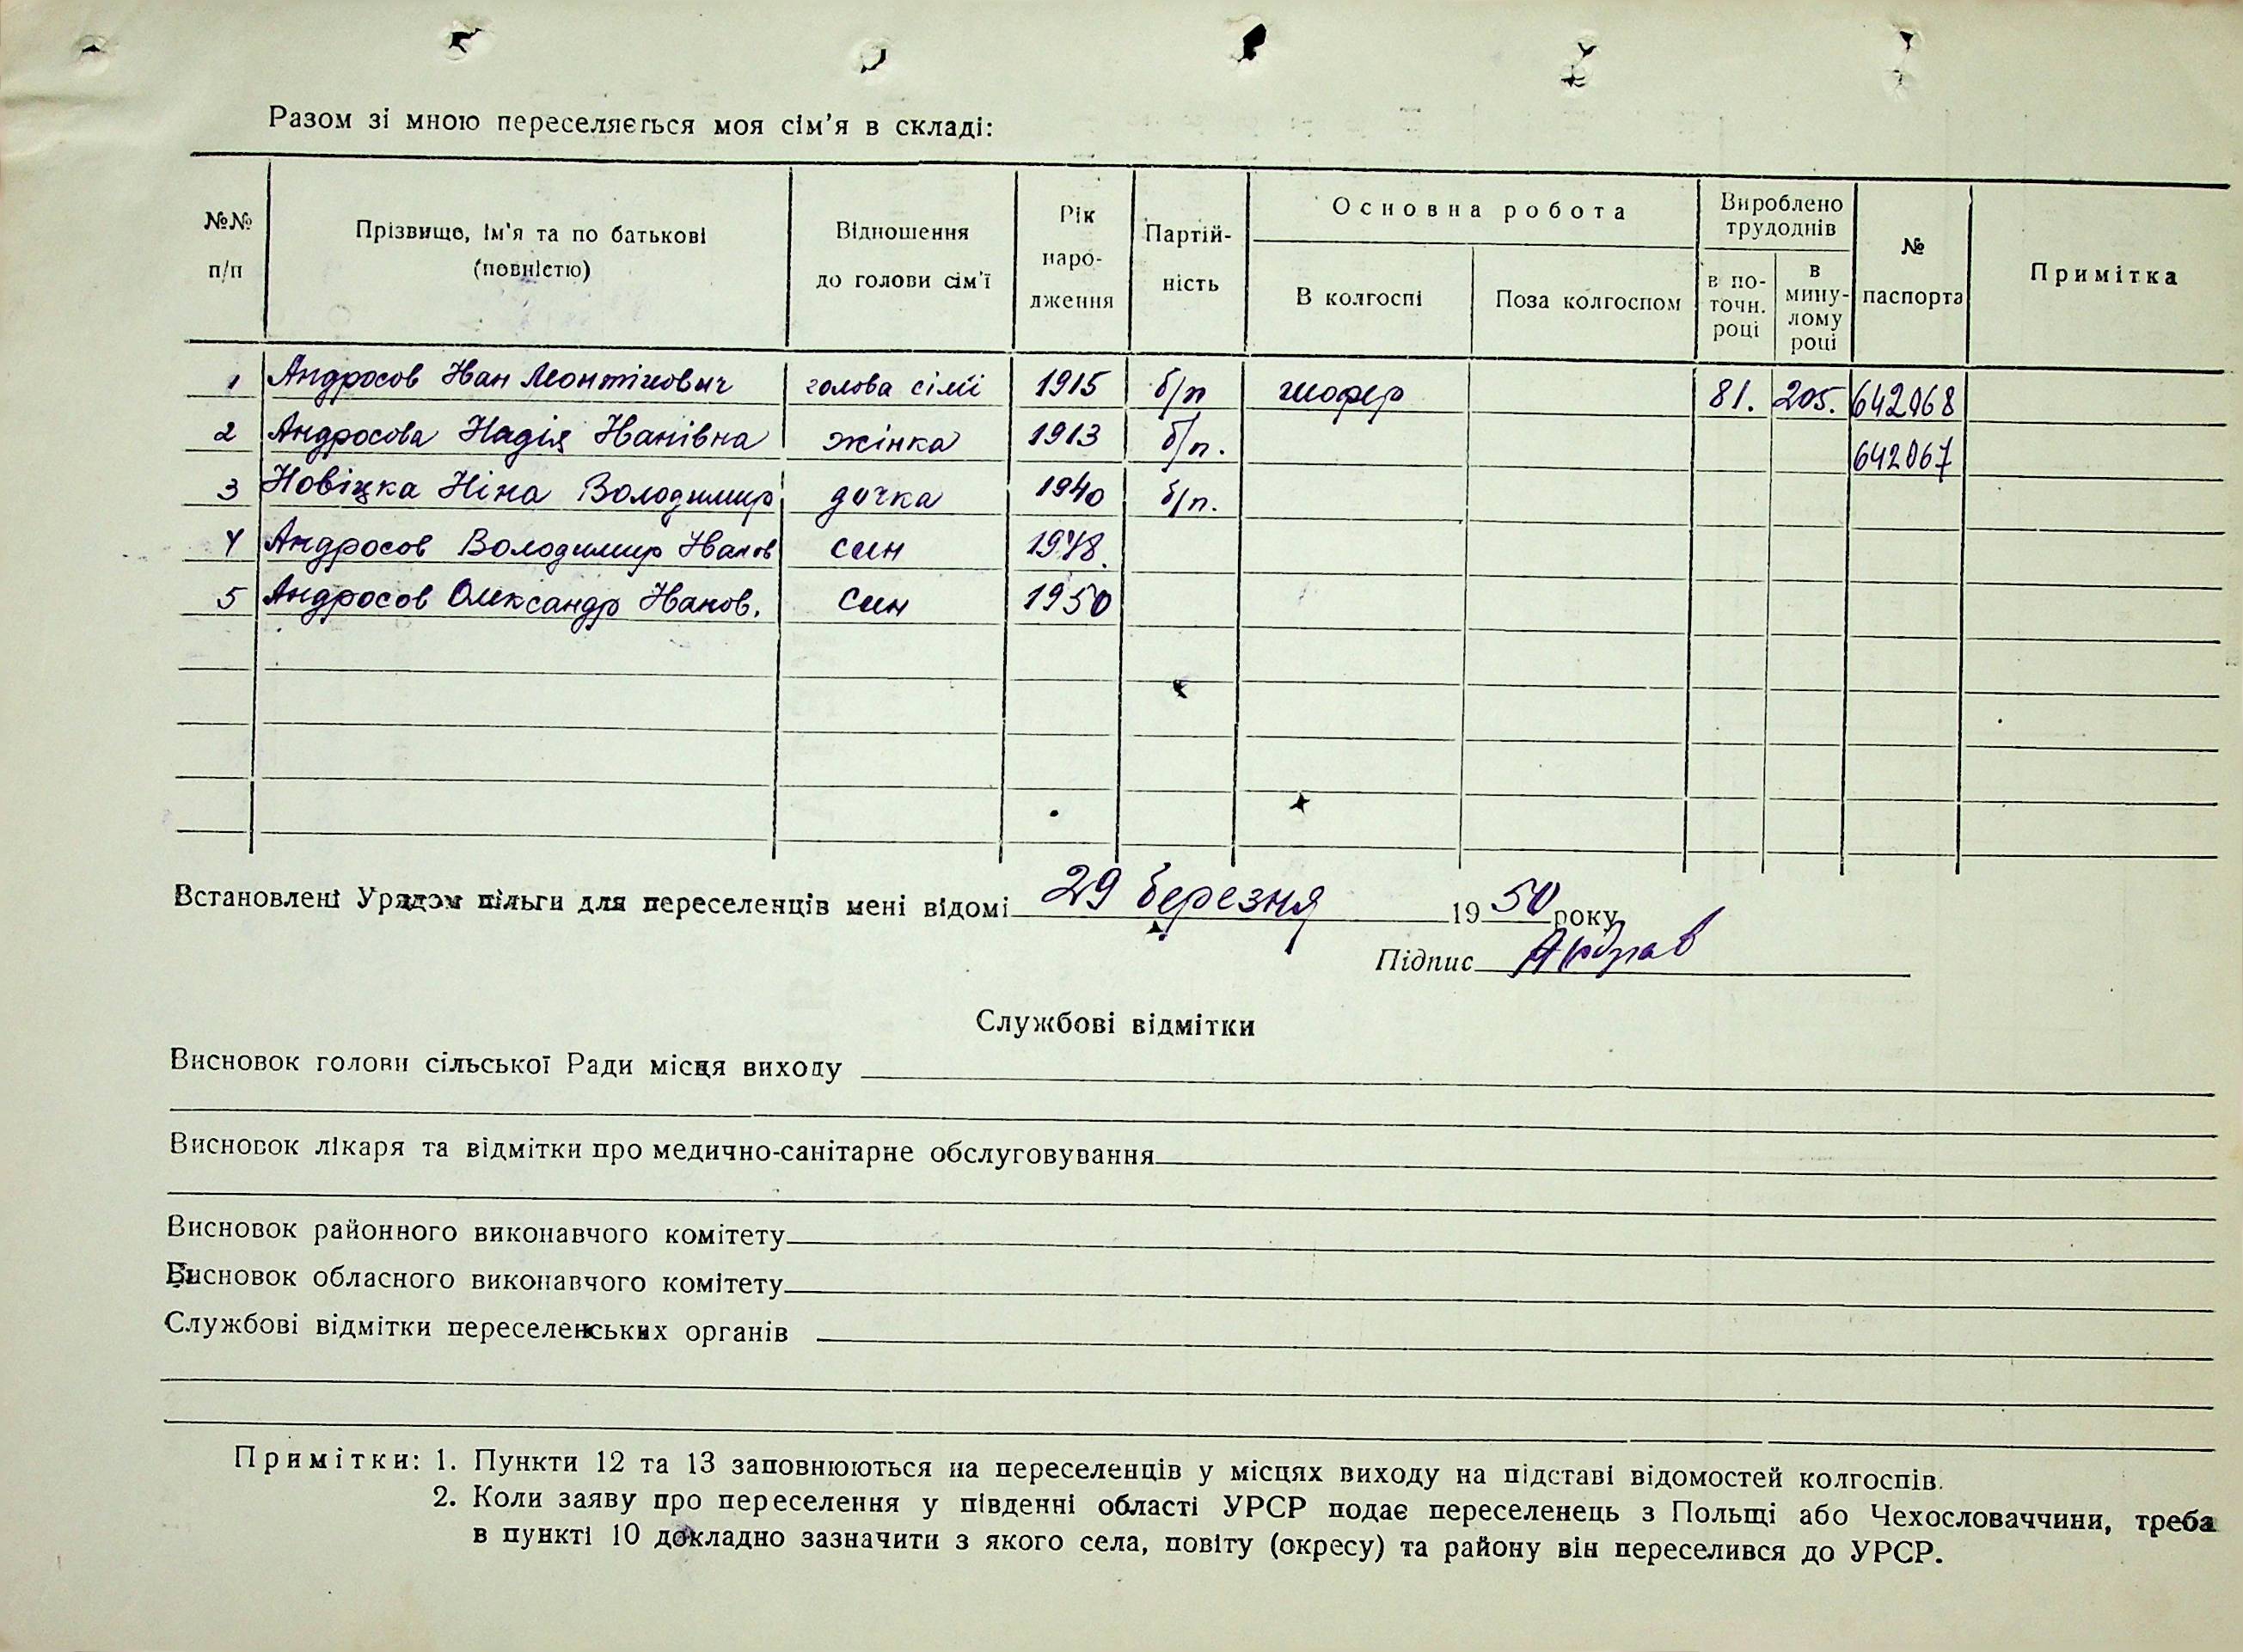 Разом зі мною переселяється моя сім'я в складі:
№№ п/п
Прізвище, ім'я та по батькові (повністю)
Відношення до голови сім'ї
Рік наро- дження
Партій- ність
Основна робота
В колгоспі
Поза колгоспом
Вироблено трудоднів
в по- точн. році
в мину- лому році
№ паспорта
Примітка
1 Андросов Іван Леонтійович голова сімї 1915 б/п шофер 81. 205. 642068
2 Андросова Надія Іванівна жінка 1913 б/п. 642067
3 Новіцка Ніна Володимир дочка 1940 б/п.
4 Андросов Володимир Іванов син 1948.
5 Андросов Олександр Іванов. син 1950
Встановлені Урядом пільги для переселенців мені відомі 29 березня 1950 року
Підпис
Службові відмітки
Висновок голови сільської Ради місця виходу
Висновок лікаря та відмітки про медично-санітарне обслуговування
Висновок районного виконавчого комітету
Висновок обласного виконавчого комітету
Службові відмітки переселенських органів
Примітки: 1. Пункти 12 та 13 заповнюються на переселенців у місцях виходу на підставі відомостей колгоспів.
2. Коли заяву про переселення у південні області УРСР подає переселенець з Польщі або Чехословаччини, треба
в пункті 10 докладно зазначити з якого села, повіту (окресу) та району він переселився до УРСР.